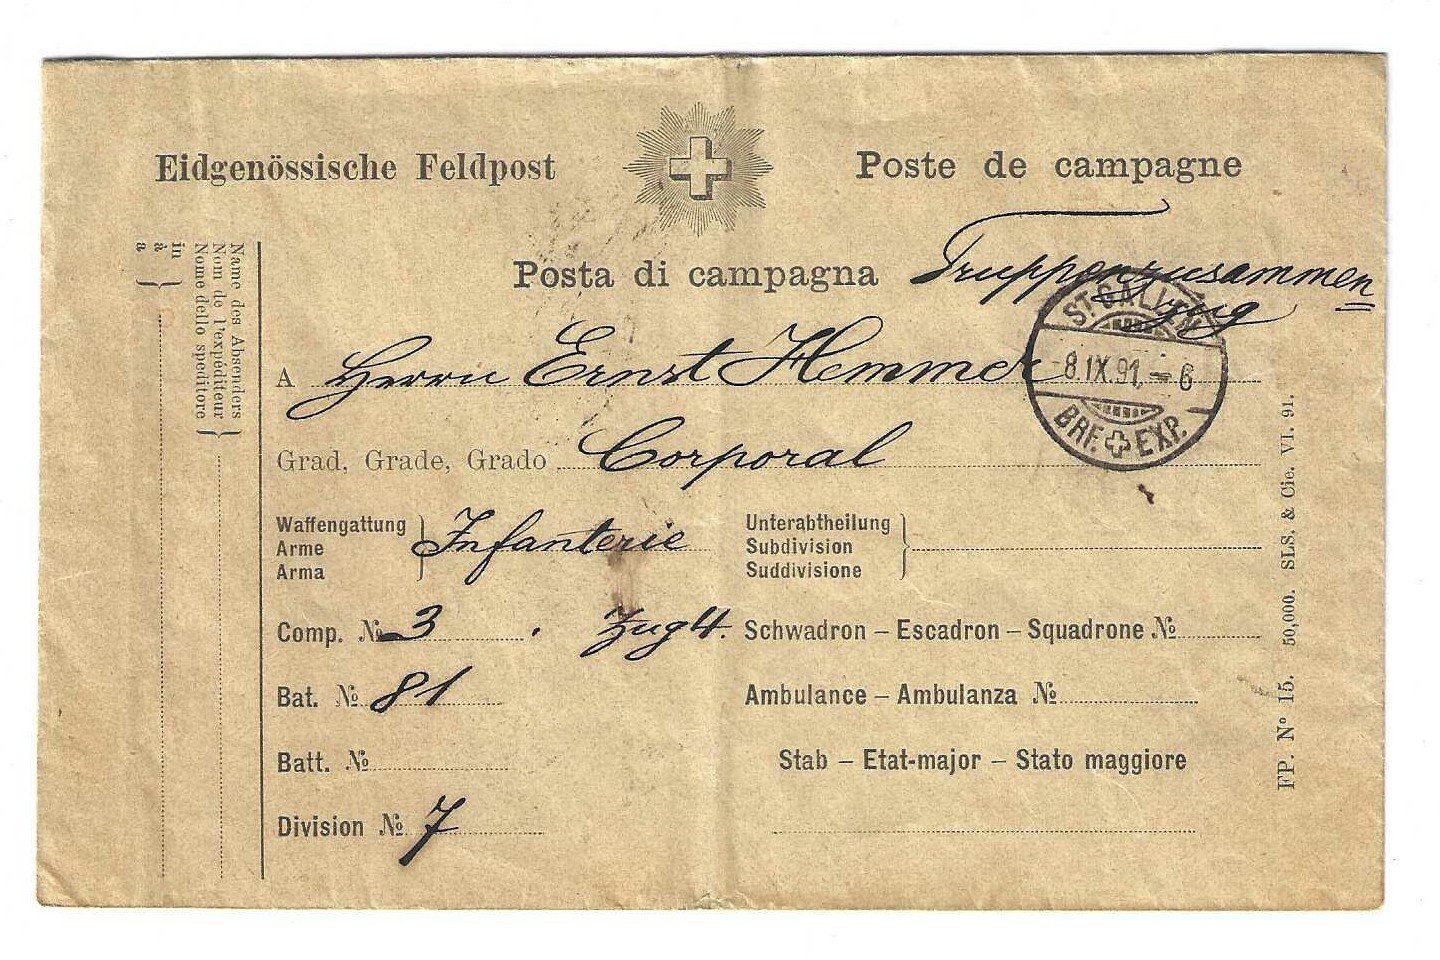 Eidgenössische Feldpost
Poste de campagne
Posta di campagna
Truppenzusammen=
zug
ST. GALLEN
8.IX.91.–6
BRF. EXP.
A Herrn Ernst Hemmer
Grad, Grade, Grado Corporal
Waffengattung
Arme
Arma
Infanterie
Unterabtheilung
Subdivision
Suddivisione
Comp. № 3. Zug 4.
Schwadron – Escadron – Squadrone №
Bat. № 81
Ambulance – Ambulanza №
Batt. №
Stab – Etat-major – Stato maggiore
Division № 7
Name des Absenders
Nom de l'expéditeur
Nome dello speditore
in
à
a
FP. N° 15. 50,000. SLS. & Cie. VI. 91.